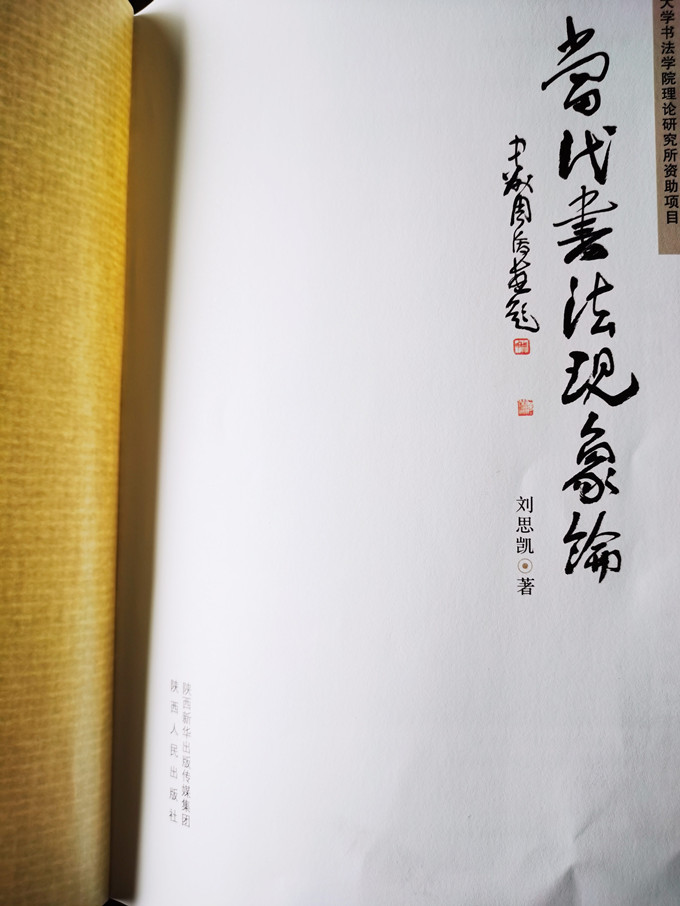 大学书法学院理论研究所资助项目
當代書法現象論
周俊杰题
刘思凯 著
陕西新华出版传媒集团
陕西人民出版社